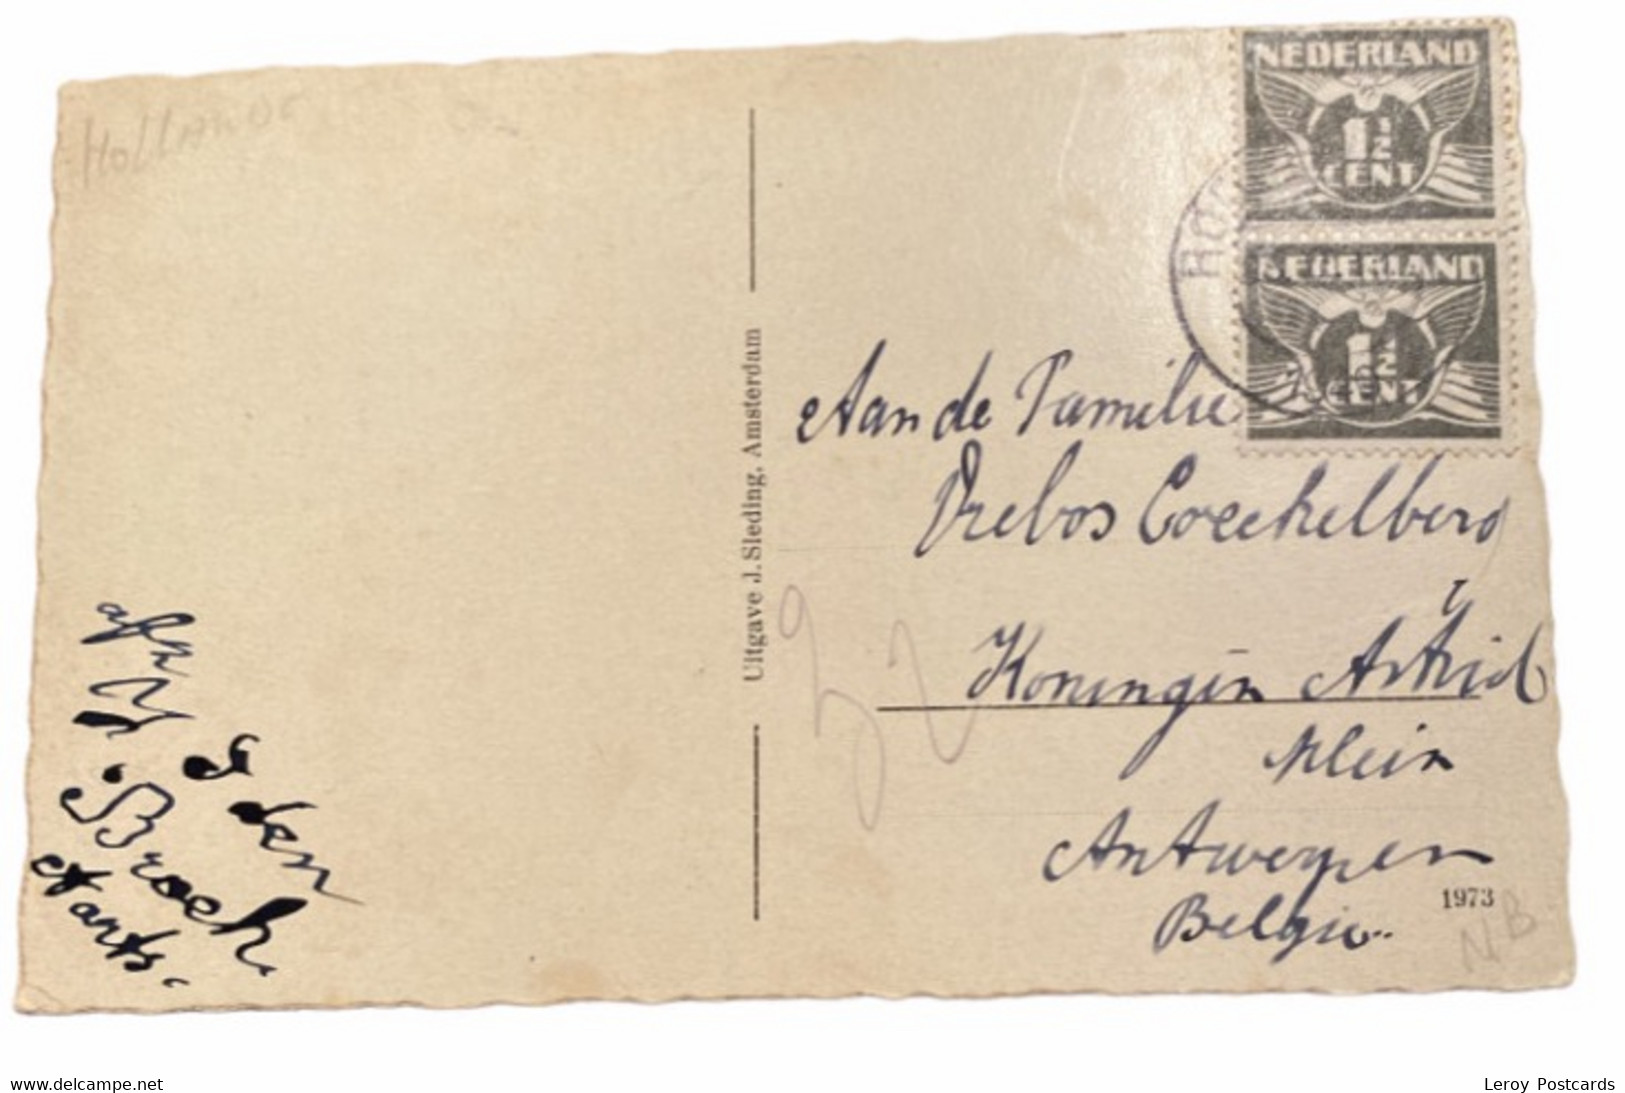 HOLLANDE
NEDERLAND
1½
CENT
NEDERLAND
1½
CENT
Uitgave J. Sleding, Amsterdam
Aan de Familie
Coeckelberg
Koningin Astrid
plein
Antwerpen
België
1973
NB
den
Broek
Aarts
www.delcampe.net
Leroy Postcards